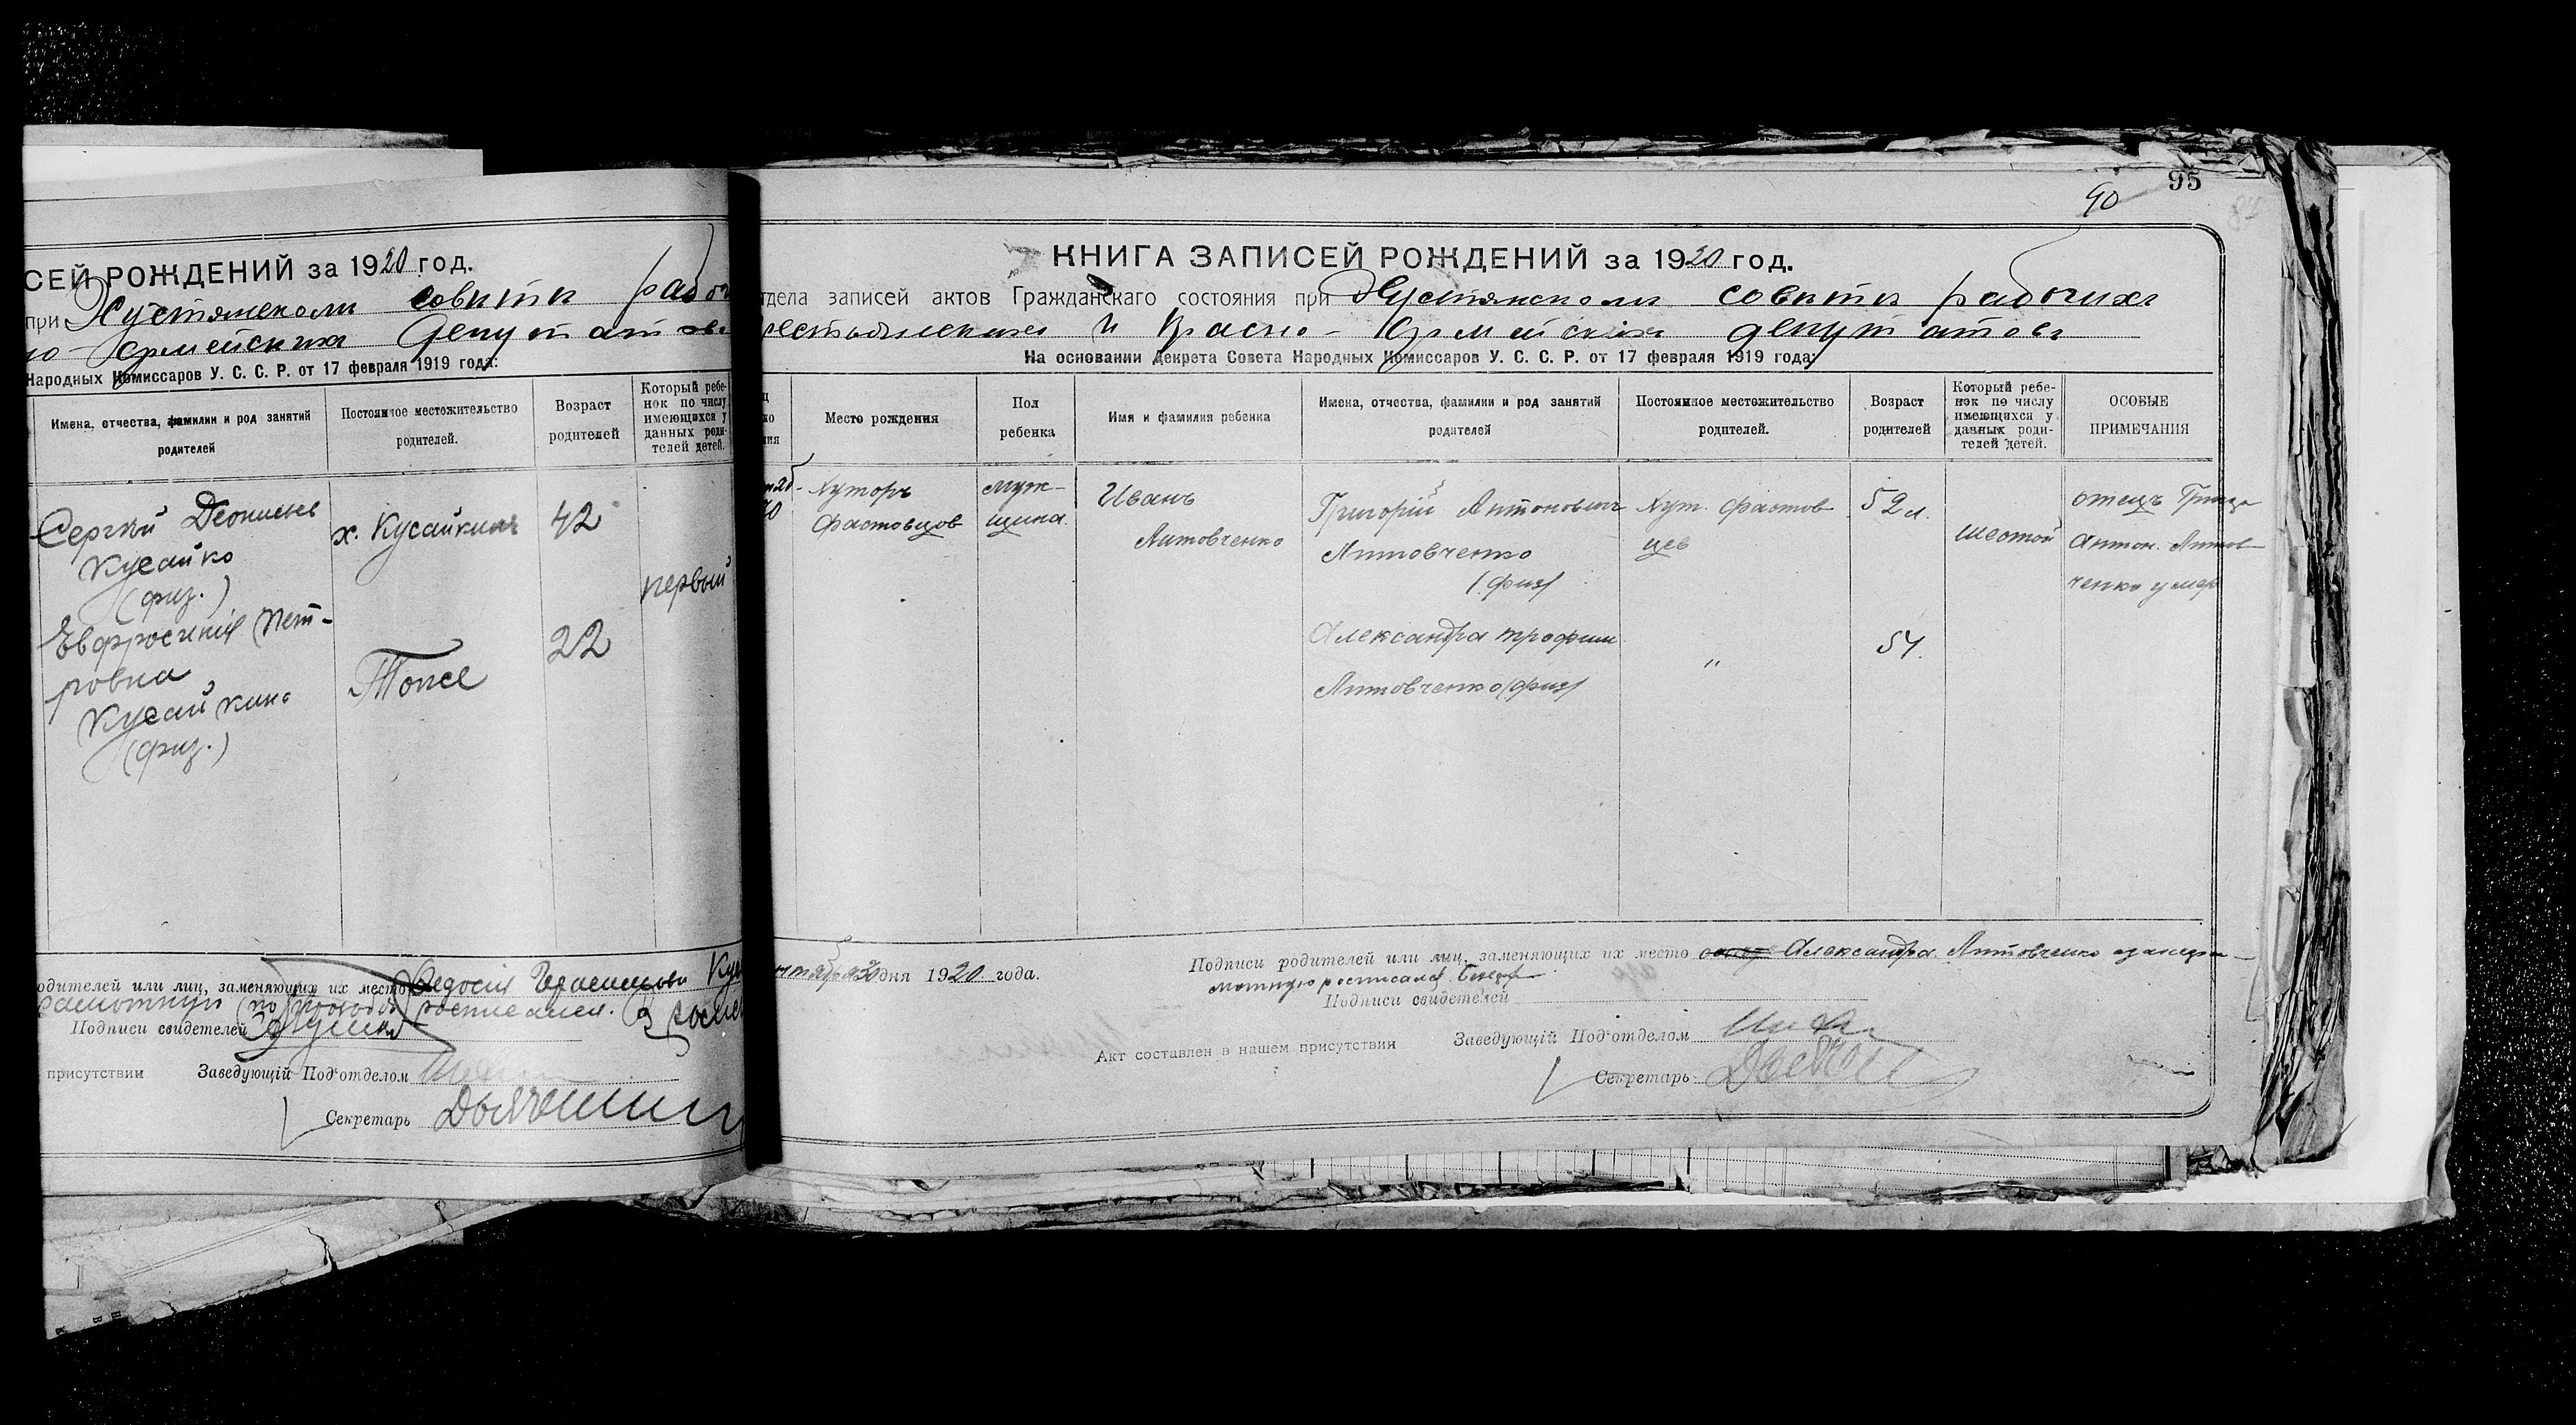 СЕЙ РОЖДЕНИЙ за 1920 год.
при Хустянском совѣти рабоч
Армейских депутатов
Народных Комиссаров У. С. С. Р. от 17 февраля 1919 года:
Имена, отчества, фамилии и род занятий
родителей
Постоянное местожительство
родителей.
Возраст
родителей
Который ребе-
нок по числу
имеющихся у
данных роди-
телей детей.
Сергѣй
Кусайко
(физ.)
Евфросинія Пет-
ровна
(физ.)
х. Кусайкин
Тоже
42
22
первый
одителей или лиц, заменяющих их место Федосія
росписался.
Подписи свидетелей
присутствии
Заведующій Под‘отделом
Секретарь
95
90
87
КНИГА ЗАПИСЕЙ РОЖДЕНИЙ за 1920 год.
тдела записей актов Гражданскаго состояния при Хустянском совѣти рабочихъ
и Красно-Армейскихъ депутатовъ
На основании Декрета Совета Народных Комиссаров У. С. С. Р. от 17 февраля 1919 года:
Место рождения
Пол
ребенка
Имя и фамилия ребенка
Имена, отчества, фамилии и род занятий
родителей
Постоянное местожительство
родителей.
Возраст
родителей
Который ребе-
нок по числу
имеющихся у
данных роди-
телей детей.
ОСОБЫЕ
ПРИМЕЧАНИЯ
Хуторъ
Фастовцов
муж-
щина.
Иванъ
Литовченко
Григорій Антонович
Литовченко
(физ)
Александра Трофим
Литовченко (физ)
Хут. Фастов
цев
"
52 л.
54.
шестой
отецъ Григор
Антон. Литов-
ченко умер
дня 1920 года.
Подписи родителей или лиц, заменяющих их место Александра Литовченко
росписался
Подписи свидетелей
Акт составлен в нашем присутствии
Заведующій Под‘отделом
Секретарь